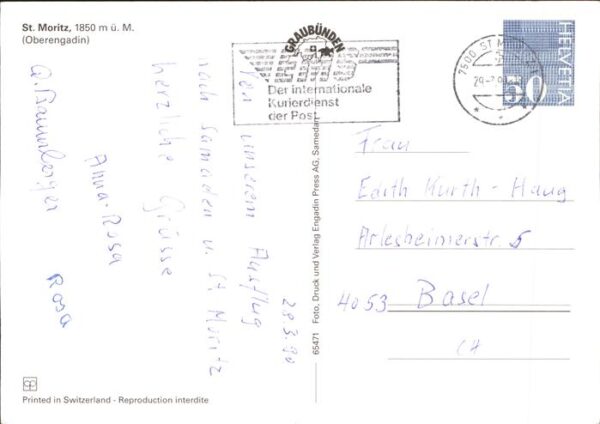 St. Moritz, 1850 m ü. M.
(Oberengadin)
28.3.90
Von unserem Ausflug
nach Samaden u. St. Moritz
herzliche Grüsse
Anna-Rosa
Rosa
GRAUBÜNDEN
EMS
Der internationale
Kurierdienst
der Post
7500 ST. MORITZ
HELVETIA
50
Frau
Edith Kurth-Haug
Arlesheimerstr. 5
4053 Basel
CH
65471 Foto, Druck und Verlag Engadin Press AG, Samedan
Printed in Switzerland - Reproduction interdite